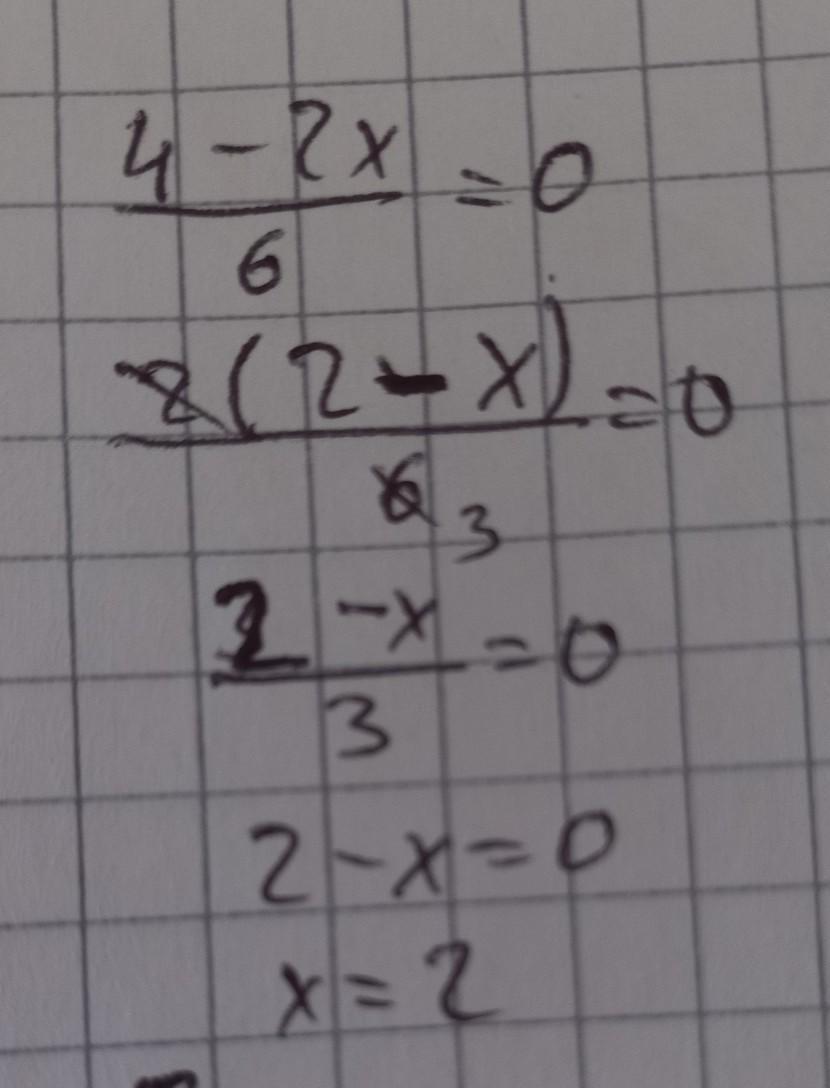 4 - 2x / 6 = 0
2(2 - x) / 6 3 = 0
2 - x / 3 = 0
2 - x = 0
x = 2